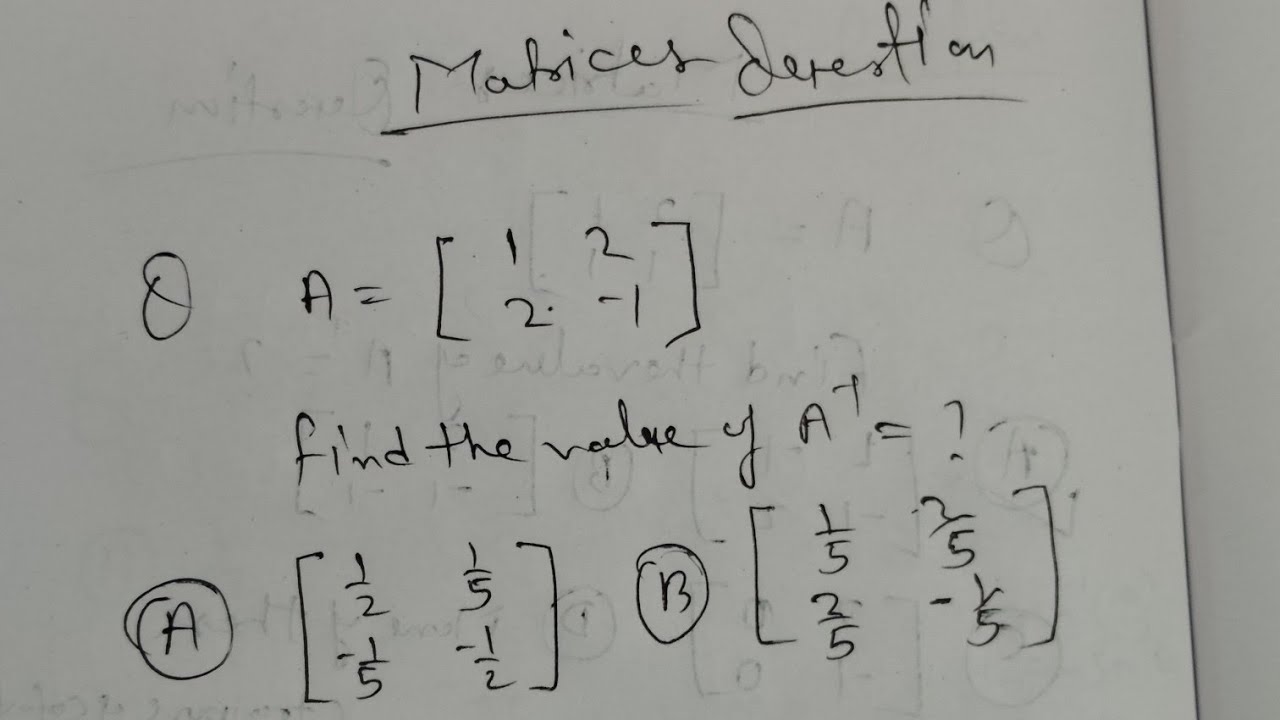 Matrices Question
Q A = [ 1 2
2 -1 ]
find the value of A⁻¹ = ?
(A) [ 1/2 1/5
-1/5 -1/2 ]
(B) [ 1/5 2/5
2/5 -1/5 ]